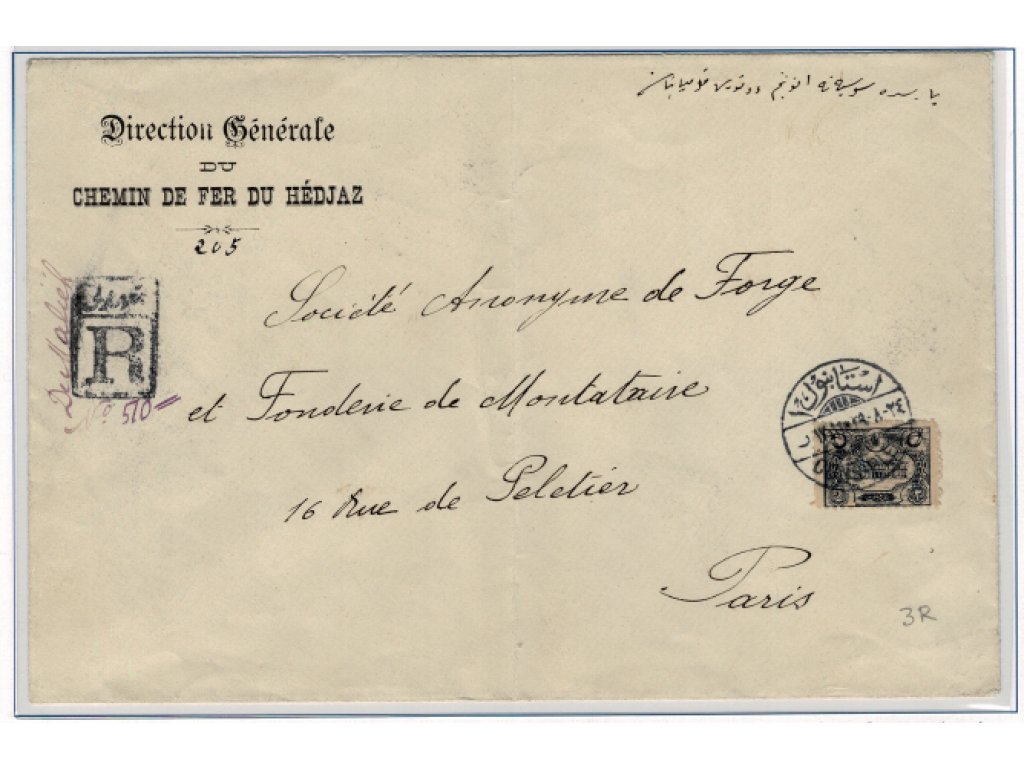 Direction Générale
DU
CHEMIN DE FER DU HÉDJAZ
205
R
No 510
Société Anonyme de Forge
et Fonderie de Montataire
16 Rue de Peletier
Paris
استانبول
3R